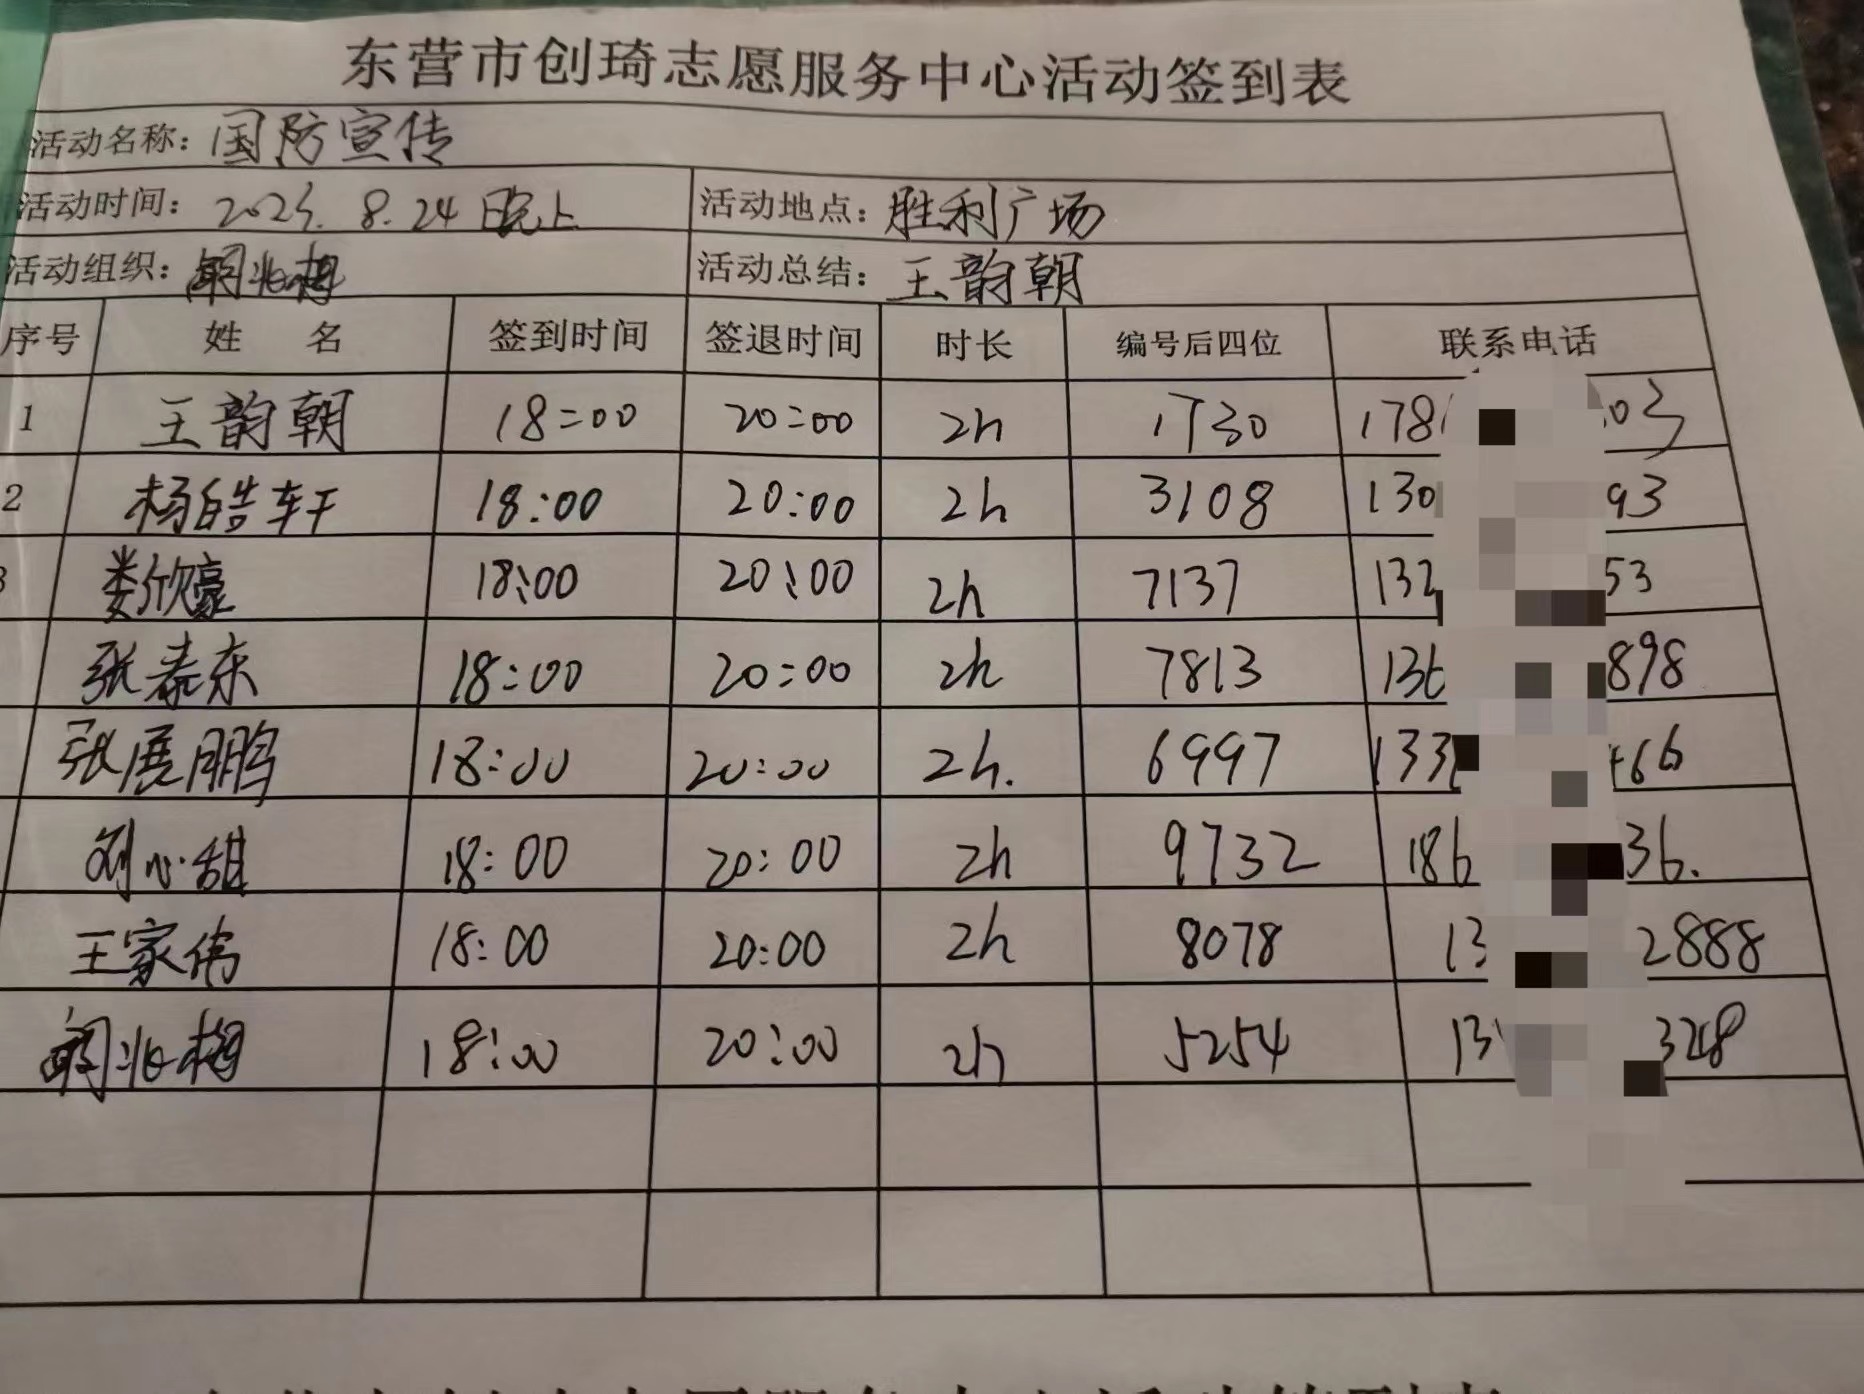 东营市创琦志愿服务中心活动签到表
活动名称：国防宣传
活动时间：2025.8.24 晚上 活动地点：胜利广场
活动组织： 活动总结：王韵朝
序号 姓 名 签到时间 签退时间 时长 编号后四位 联系电话
1 王韵朝 18:00 20:00 2h 1730 178 03
2 杨皓轩 18:00 20:00 2h 3108 130 93
3 娄欣豪 18:00 20:00 2h 7137 132 53
张泰东 18:00 20:00 2h 7813 136 898
张展鹏 18:00 20:00 2h. 6997 133 466
刘心甜 18:00 20:00 2h 9732 186 36.
王家伟 18:00 20:00 2h 8078 13 2888
18:00 20:00 2h 5254 13 328